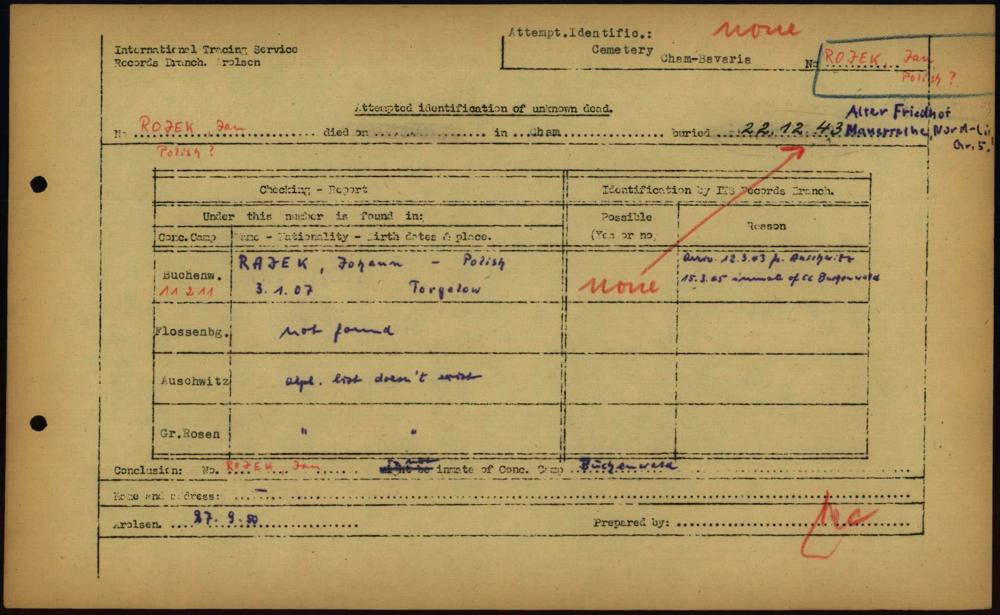 Attempt.Identific.: none
International Tracing Service
Records Branch. Arolsen
Cemetery
Cham-Bavaria
No ROJEK, Jan
Polish ?
Attempted identification of unknown dead.
Alter Friedhof
No ROJEK, Jan died on in Cham buried 22.12.43 Mauerreihe, Nord-Li
Polish ? Gr. 5.
Checking - Report Identification by ITS Records Branch.
Under this number is found in: Possible Reason
Conc.Camp Name - Nationality - Birth dates & place. (Yes or no)
Buchenw. RAJEK, Johann - Polish
11211 3.1.07 Torgelow none inmate of CC
Flossenbg. not found
Auschwitz alph. list doesn't exist
Gr.Rosen " "
Conclusion: No. ROJEK, Jan inmate of Conc. Camp Buchenwald
Name and address: –
Arolsen. 27. 9. 50 Prepared by: